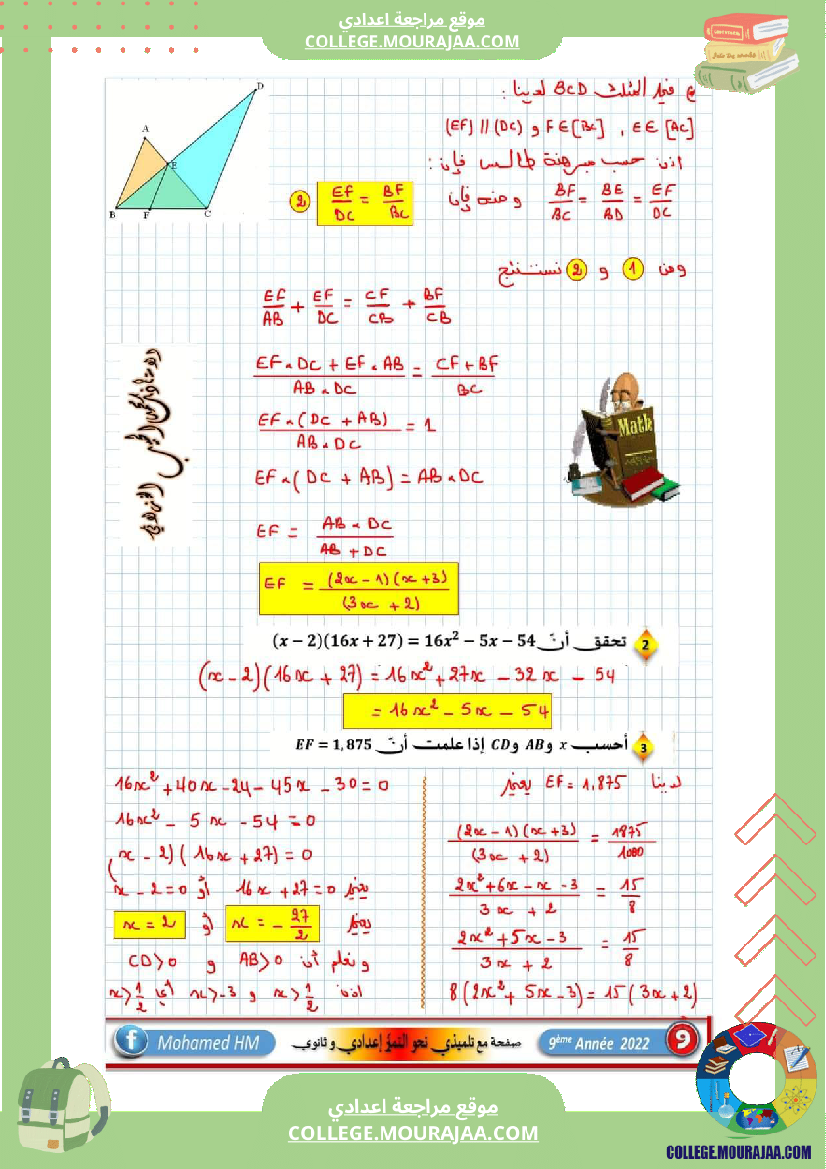 موقع مراجعة اعدادي
COLLEGE.MOURAJAA.COM
في المثلث BCD لدينا :
(EF) // (DC) و F∈[BC] , E∈[AC]
اذن حسب مبرهنة طالس فإن :
BF/BC = BE/BD = EF/DC ومنه فإن EF/DC = BF/BC 2
D
A
E
B F C
ومن 1 و 2 نستنتج
EF/AB + EF/DC = CF/CB + BF/CB
(EF × DC + EF × AB)/(AB × DC) = (CF + BF)/BC
EF × (DC + AB)/(AB × DC) = 1
EF × (DC + AB) = AB × DC
EF = (AB × DC)/(AB + DC)
EF = (2x - 1)(x + 3)/(3x + 2)
Math
2 تحقق أنّ (x − 2)(16x + 27) = 16x² − 5x − 54
(x - 2)(16x + 27) = 16x² + 27x - 32x - 54
= 16x² - 5x - 54
3 أحسب x و AB و CD إذا علمت أنّ EF = 1,875
لدينا EF = 1.875 يعني
(2x - 1)(x + 3)/(3x + 2) = 1875/1000
(2x² + 6x - x - 3)/(3x + 2) = 15/8
(2x² + 5x - 3)/(3x + 2) = 15/8
8(2x² + 5x - 3) = 15(3x + 2)
16x² + 40x - 24 - 45x - 30 = 0
16x² - 5x - 54 = 0
(x - 2)(16x + 27) = 0
يعني 16x + 27 = 0 أو x - 2 = 0
يعني x = - 27/2 أو x = 2
و نعلم أن AB > 0 و CD > 0
اذن x > 1/2 و x > -3 أي x > 1/2
Mohamed HM
صفحة مع تلميذي نحو التميّز إعدادي و ثانوي
9ème Année 2022
9
موقع مراجعة اعدادي
COLLEGE.MOURAJAA.COM
COLLEGE.MOURAJAA.COM